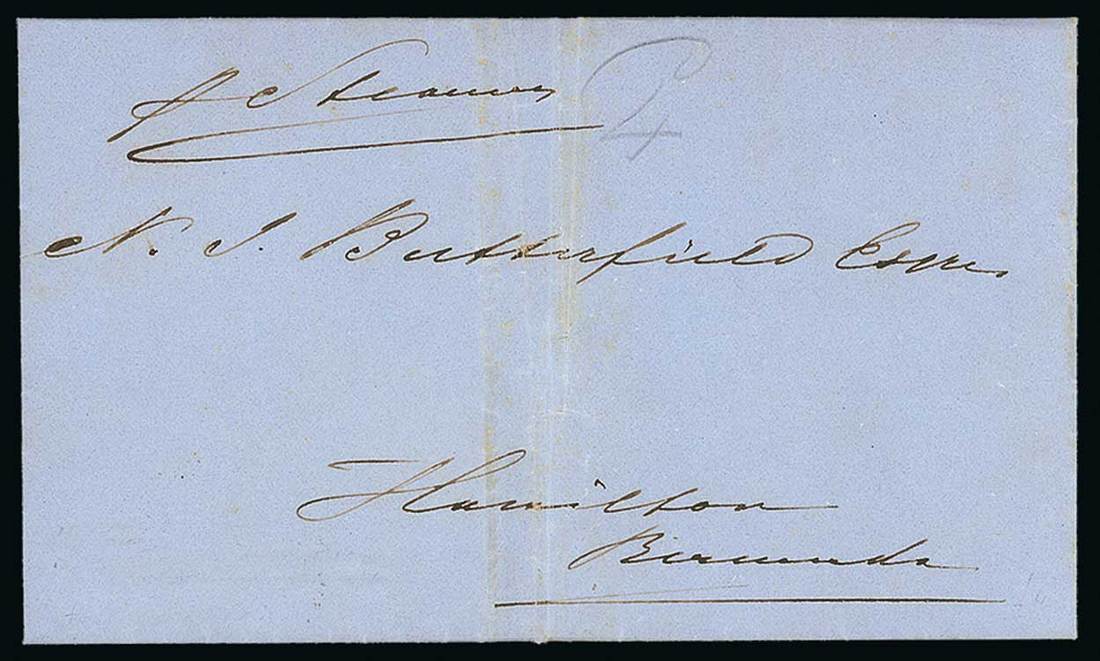 p Steamer
N. J. Butterfield Esqre.
Hamilton
Bermuda